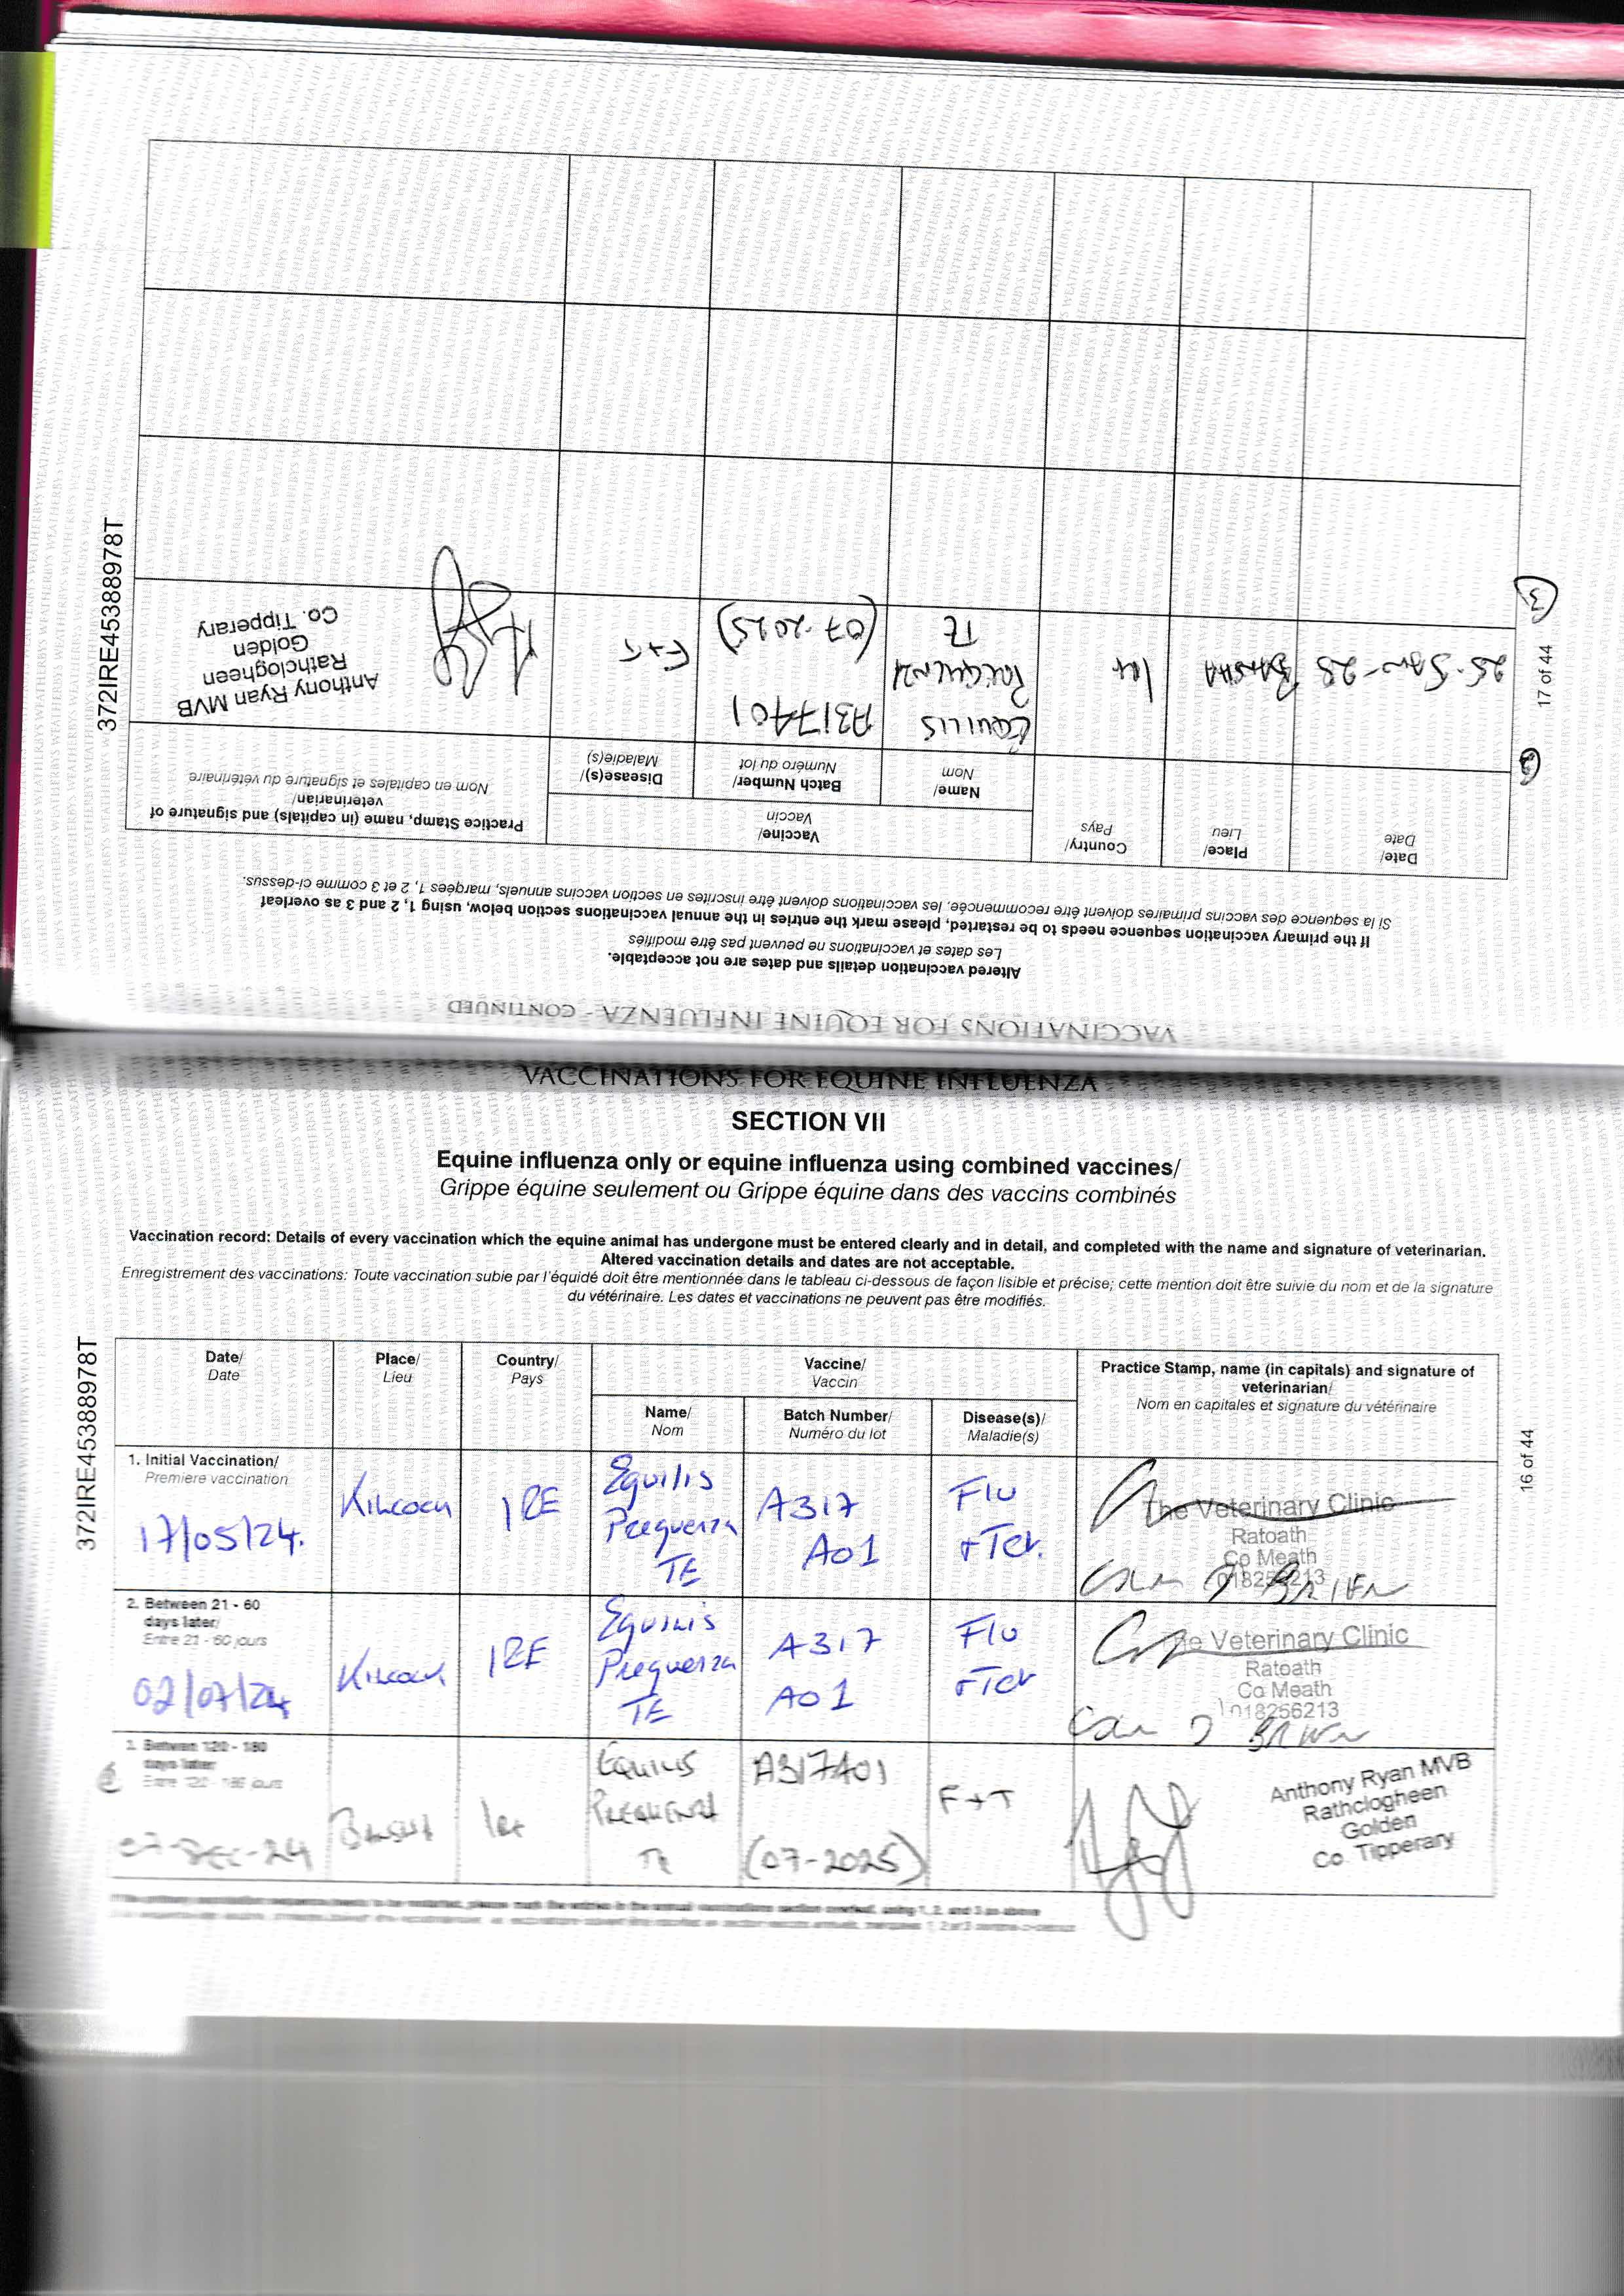 VACCINATIONS FOR EQUINE INFLUENZA
SECTION VII
Equine influenza only or equine influenza using combined vaccines/
Grippe équine seulement ou Grippe équine dans des vaccins combinés
Vaccination record: Details of every vaccination which the equine animal has undergone must be entered clearly and in detail, and completed with the name and signature of veterinarian.
Altered vaccination details and dates are not acceptable.
Enregistrement des vaccinations: Toute vaccination subie par l'équidé doit être mentionnée dans le tableau ci-dessous de façon lisible et précise; cette mention doit être suivie du nom et de la signature
du vétérinaire. Les dates et vaccinations ne peuvent pas être modifiés.
372IRE45388978T
16 of 44
Date/
Date
Place/
Lieu
Country/
Pays
Vaccine/
Vaccin
Name/
Nom
Batch Number/
Numéro du lot
Disease(s)/
Maladie(s)
Practice Stamp, name (in capitals) and signature of
veterinarian/
Nom en capitales et signature du vétérinaire
1. Initial Vaccination/
Premiere vaccination
17/05/24.
Kilcock
IRE
Equilis
Prequenza
TE
A317
A01
Flu
+Tet.
The Veterinary Clinic
Ratoath
Co Meath
2. Between 21 - 60
days later/
Entre 21 - 60 jours
02/07/24
Kilcock
IRE
Equilis
Prequenza
TE
A317
A01
Flu
+Tet
The Veterinary Clinic
Ratoath
Co Meath
018256213
3. Between 120 - 180
days later/
Entre 120 - 180 jours
07-DEC-24
BANSHA
Ire
EQUILIS
PREQUENZA
TE
A317A01
(07-2025)
F+T
Anthony Ryan MVB
Rathclogheen
Golden
Co. Tipperary
If the primary vaccination sequence needs to be restarted, please mark the entries in the annual vaccinations section overleaf, using 1, 2, and 3 as above
VACCINATIONS FOR EQUINE INFLUENZA - CONTINUED
Altered vaccination details and dates are not acceptable.
Les dates et vaccinations ne peuvent pas être modifiés
If the primary vaccination sequence needs to be restarted, please mark the entries in the annual vaccinations section below, using 1, 2 and 3 as overleaf
Si la sequence des vaccins primaires doivent être recommencée, les vaccinations doivent être inscrites en section vaccins annuels, marqées 1, 2 et 3 comme ci-dessus.
372IRE45388978T
17 of 44
Date/
Date
Place/
Lieu
Country/
Pays
Vaccine/
Vaccin
Name/
Nom
Batch Number/
Numéro du lot
Disease(s)/
Maladie(s)
Practice Stamp, name (in capitals) and signature of
veterinarian/
Nom en capitales et signature du vétérinaire
3
BANSHA
Ire
EQUILIS
PREQUENZA
TE
A317A01
(07-2025)
F+T
Anthony Ryan MVB
Rathclogheen
Golden
Co. Tipperary